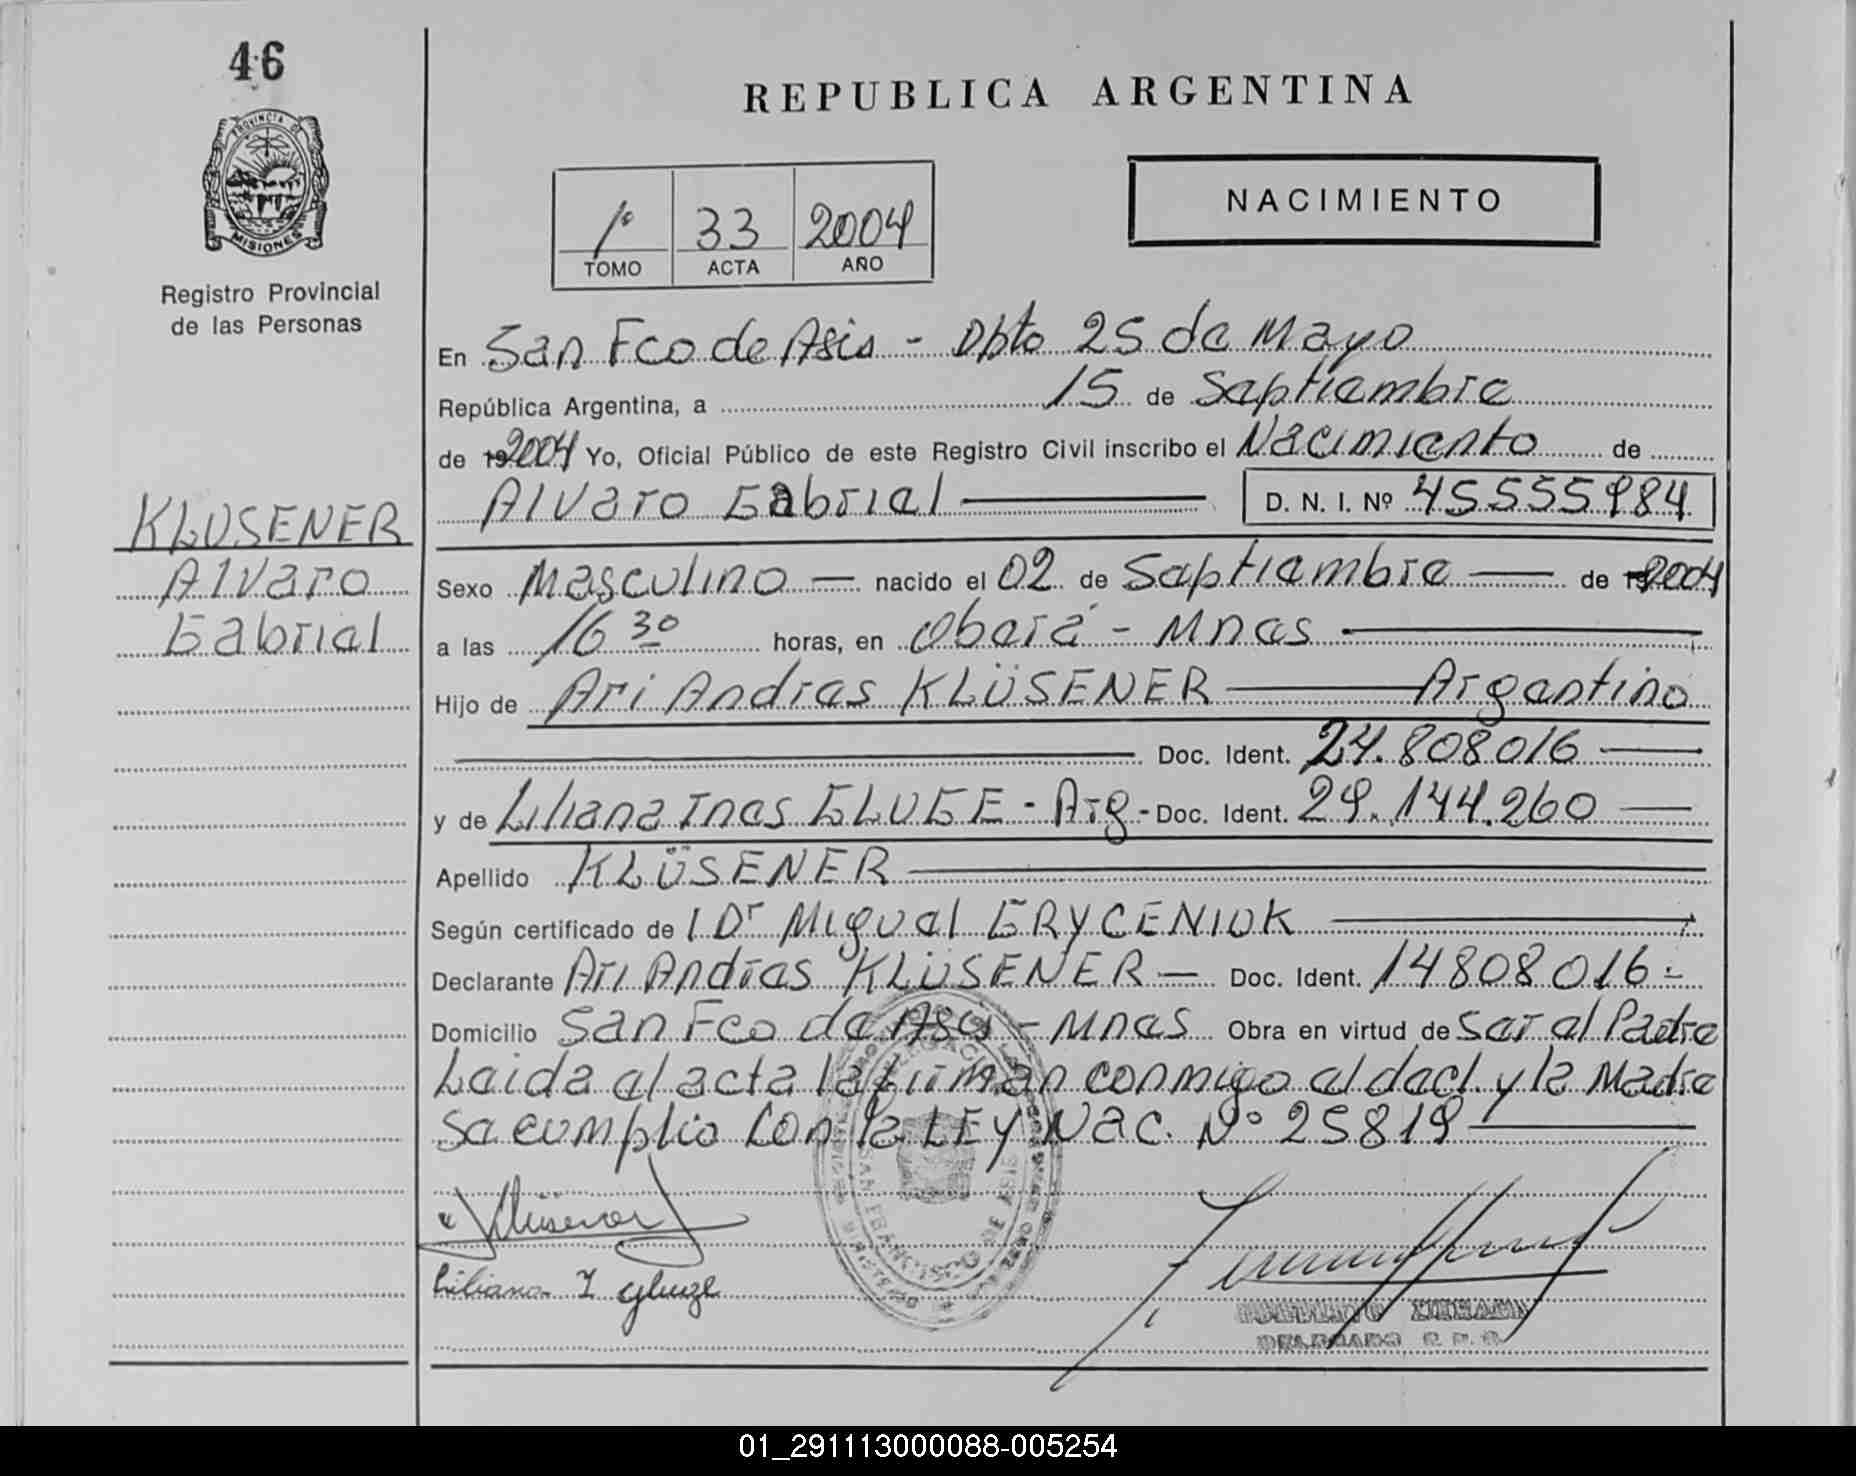 46
PROVINCIA DE
MISIONES
Registro Provincial
de las Personas
KLUSENER
Alvaro
Gabriel
REPUBLICA ARGENTINA
1º 33 2004
TOMO ACTA AÑO
NACIMIENTO
En San Fco de Asis - Dpto 25 de Mayo
República Argentina, a 15 de Septiembre
de 19 2004 Yo, Oficial Público de este Registro Civil inscribo el Nacimiento de
Alvaro Gabriel D. N. I. Nº 45555984
Sexo Masculino nacido el 02 de Septiembre de 19 2004
a las 16 30 horas, en Oberá - Mnes
Hijo de Ari Andres KLÜSENER Argentino
Doc. Ident. 24.808016
y de Liliana Ines GLUGE - Arg - Doc. Ident. 29.144.260
Apellido KLÜSENER
Según certificado de l Dr Miguel GRYCENIUK
Declarante Ari Andres KLÜSENER Doc. Ident. 14808016
Domicilio San Fco de Asis - Mnes Obra en virtud de ser el Padre
Leida el acta la firman conmigo el decl. y la Madre
se cumplio con la LEY Nac. Nº 25819
Klüsener
Liliana I gluge
SAN FRANCISCO DE ASIS
01_291113000088-005254